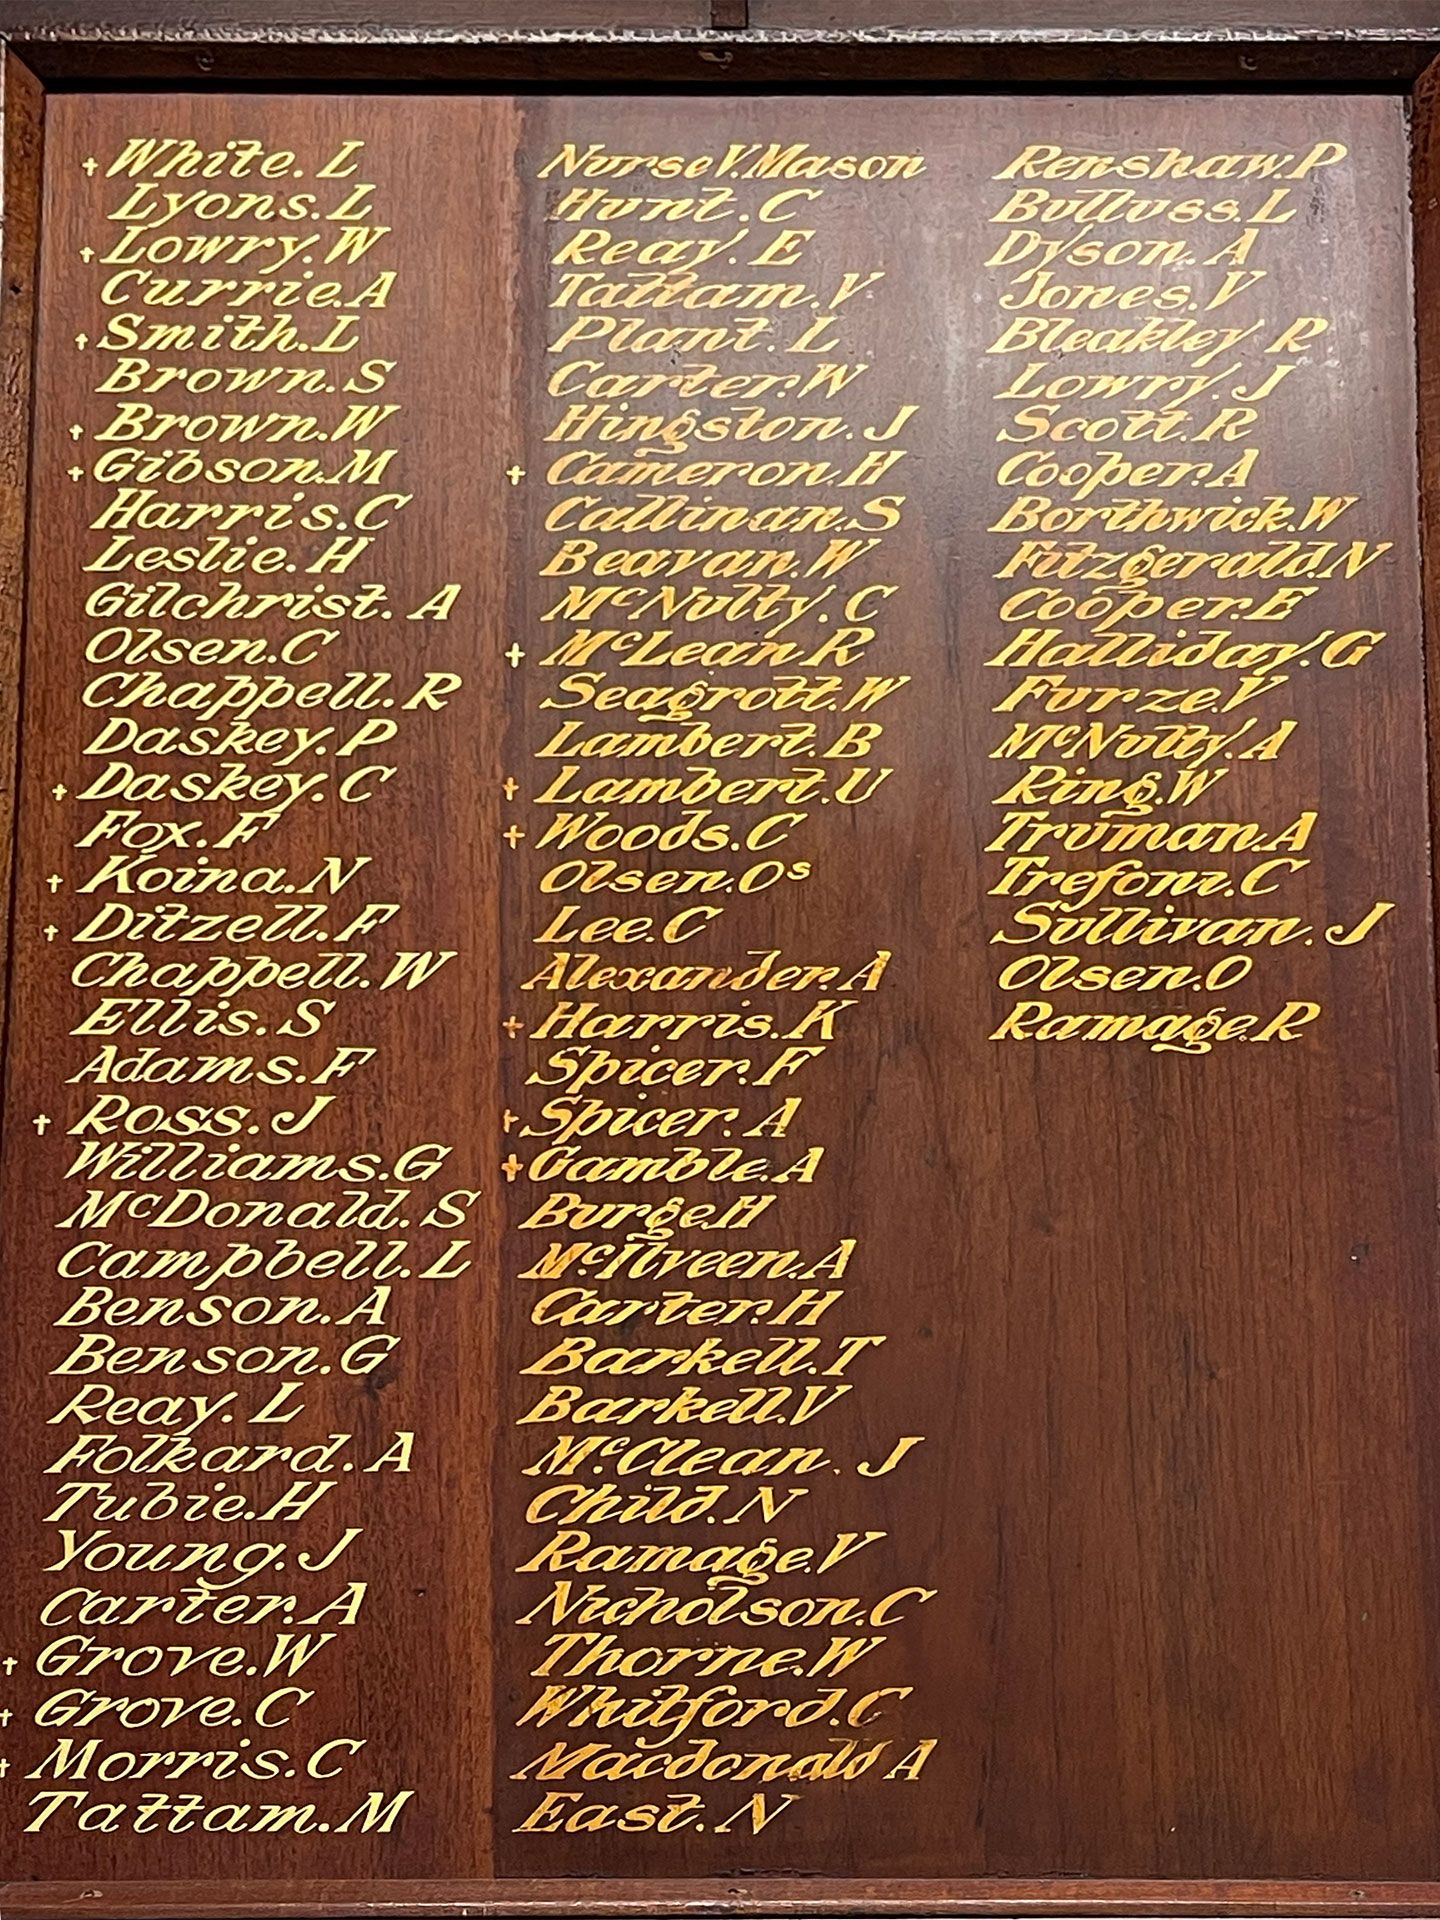 † White. L
Lyons. L
† Lowry. W
Currie. A
† Smith. L
Brown. S
† Brown. W
† Gibson. M
Harris. C
Leslie. H
Gilchrist. A
Olsen. C
Chappell. R
Daskey. P
† Daskey. C
Fox. F
† Koina. N
† Ditzell. F
Chappell. W
Ellis. S
Adams. F
† Ross. J
Williams. G
McDonald. S
Campbell. L
Benson. A
Benson. G
Reay. L
Folkard. A
Tubie. H
Young. J
Carter. A
† Grove. W
† Grove. C
† Morris. C
Tattam. M
Nurse V. Mason
Hunt. C
Reay. E
Tattam. V
Plant. L
Carter. W
Hingston. J
† Cameron. H
Callinan. S
Beavan. W
McNulty. C
† McLean R
Seagrott. W
Lambert. B
† Lambert. U
† Woods. C
Olsen. Os
Lee. C
Alexander. A
† Harris. K
Spicer. F
† Spicer. A
† Gamble. A
Burge. H
McIlveen. A
Carter. H
Barkell. T
Barkell. V
McClean. J
Child. N
Ramage. V
Nicholson. C
Thorne. W
Whitford. C
Macdonald A
East. N
Renshaw. P
Bulluss. L
Dyson. A
Jones. V
Bleakley R
Lowry. J
Scott. R
Cooper. A
Borthwick. W
Fitzgerald. N
Cooper. E
Halliday. G
Furze. V
McNulty. A
Ring. W
Truman. A
Trefoni. C
Sullivan. J
Olsen. O
Ramage. R